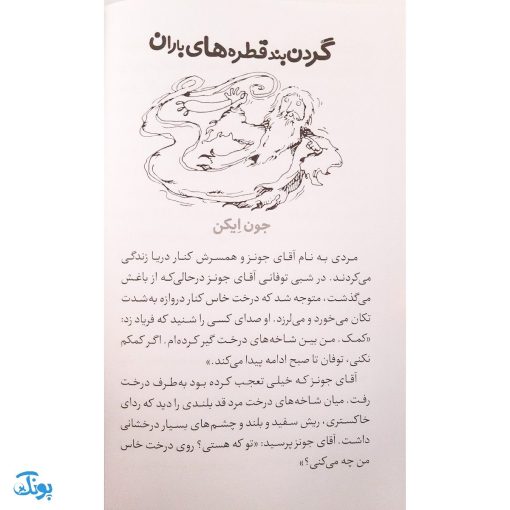 گردن‌بند قطره‌های باران
جون اِیکن
مردی به نام آقای جونز و همسرش کنار دریا زندگی
می‌کردند. در شبی توفانی آقای جونز درحالی‌که از باغش
می‌گذشت، متوجه شد که درخت خاس کنار دروازه به‌شدت
تکان می‌خورد و می‌لرزد. او صدای کسی را شنید که فریاد زد:
«کمک. من بین شاخه‌های درخت گیر کرده‌ام. اگر کمکم
نکنی، توفان تا صبح ادامه پیدا می‌کند.»
آقای جونز که خیلی تعجب کرده بود به‌طرف درخت
رفت. میان شاخه‌های درخت مرد قد بلندی را دید که ردای
خاکستری، ریش سفید و بلند و چشم‌های بسیار درخشانی
داشت. آقای جونز پرسید: «تو که هستی؟ روی درخت خاس
من چه می‌کنی؟»
پونک